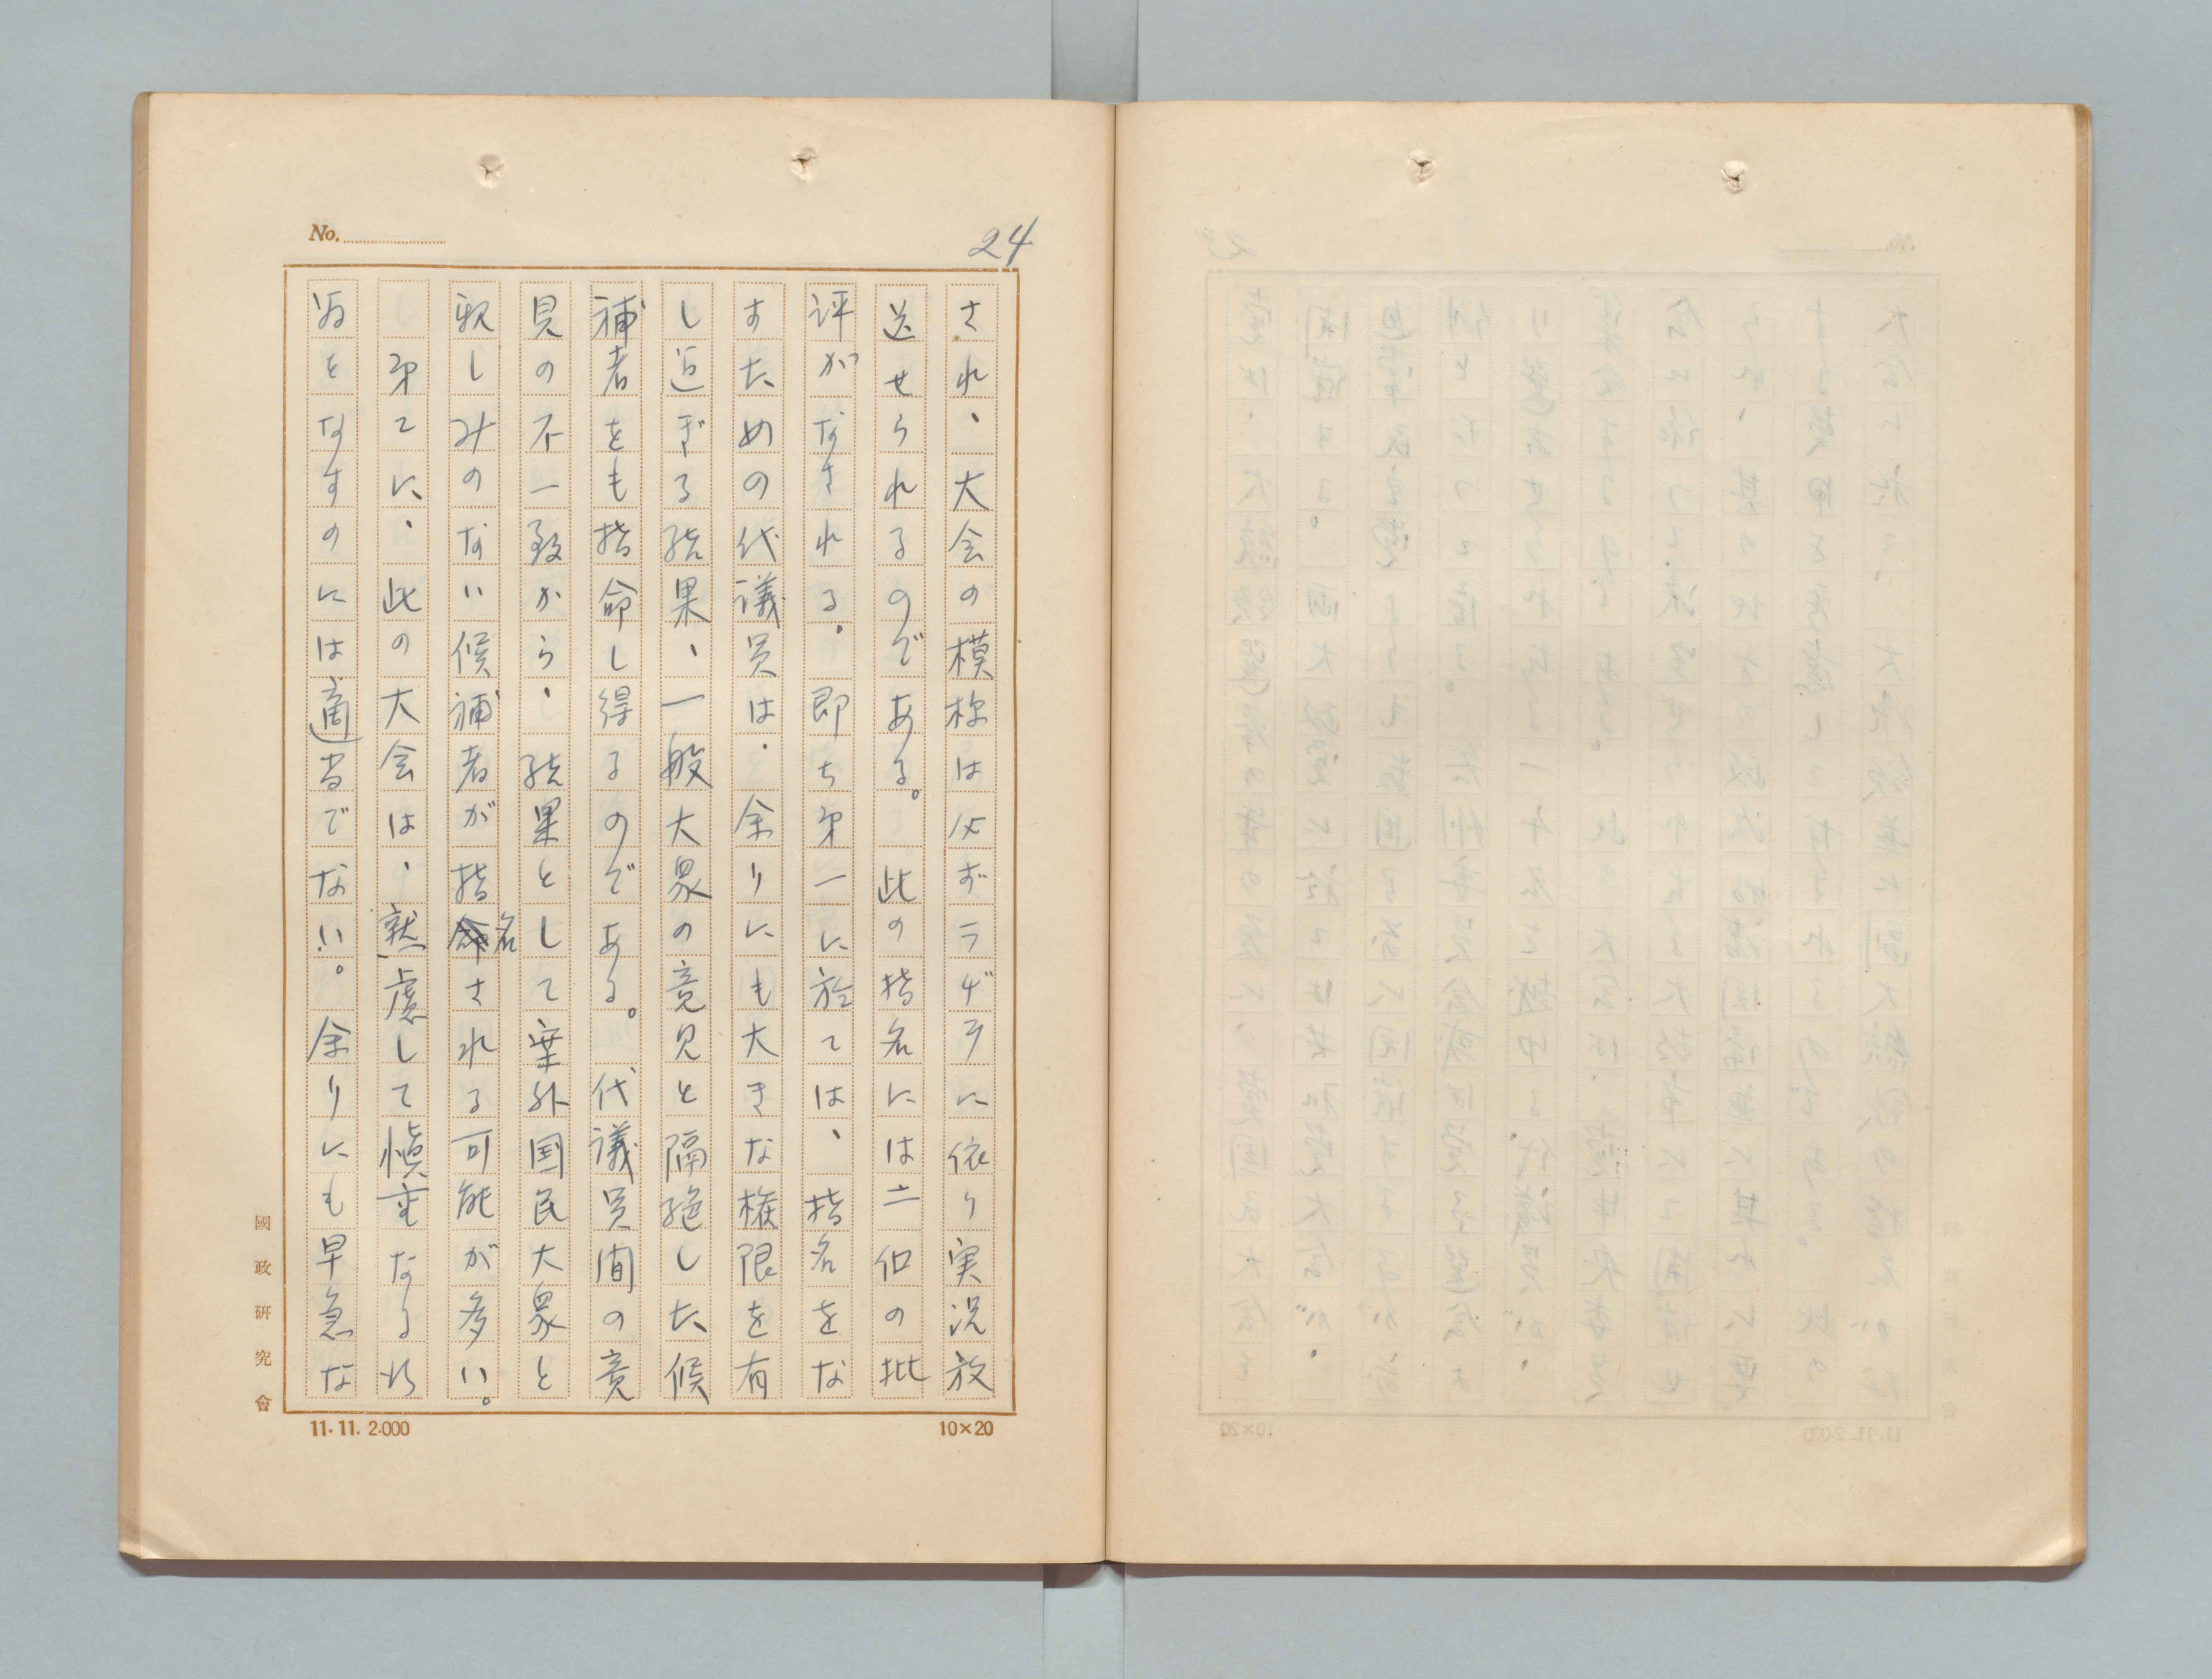 No.
24
され、大会の模様は必ずラヂヲに依り実況放
送せられるのである。 此の指名には二個の批
評がなされる。 即ち第一に於ては、指名をな
すための代議員は、余りにも大きな権限を有
し過ぎる結果、一般大衆の意見と隔絶した候
補者をも指命し得るのである。 代議員間の意
見の不一致から、結果として案外国民大衆と
親しみのない候補者が指名される可能が多い。
第二に、此の大会は、熟慮して慎重なる行
為をなすのには適当でない。 余りにも早急な
國政研究會
11.11. 2.000
10×20